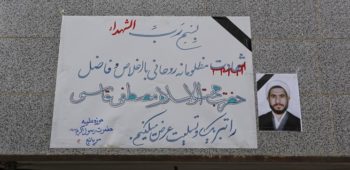 بسم رب الشهداء
شهادت مظلومانه روحانی با اخلاص و فاضل
حضرت حجة الاسلام مصطفی قاسمی
را تبریک و تسلیت عرض میکنیم.
حوزه علمیه
حضرت رسول اکرم